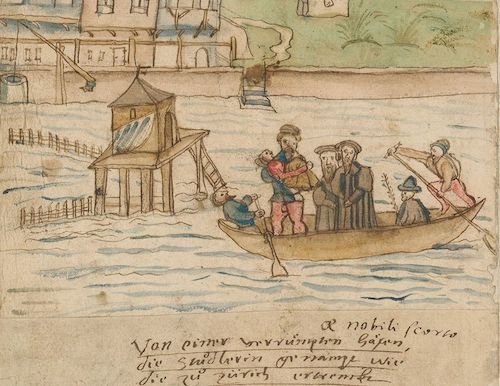 & nobili scorto
Von einer verrümpten häxen,
die Studlerin genampt wie
die zů zürich ertrenckt